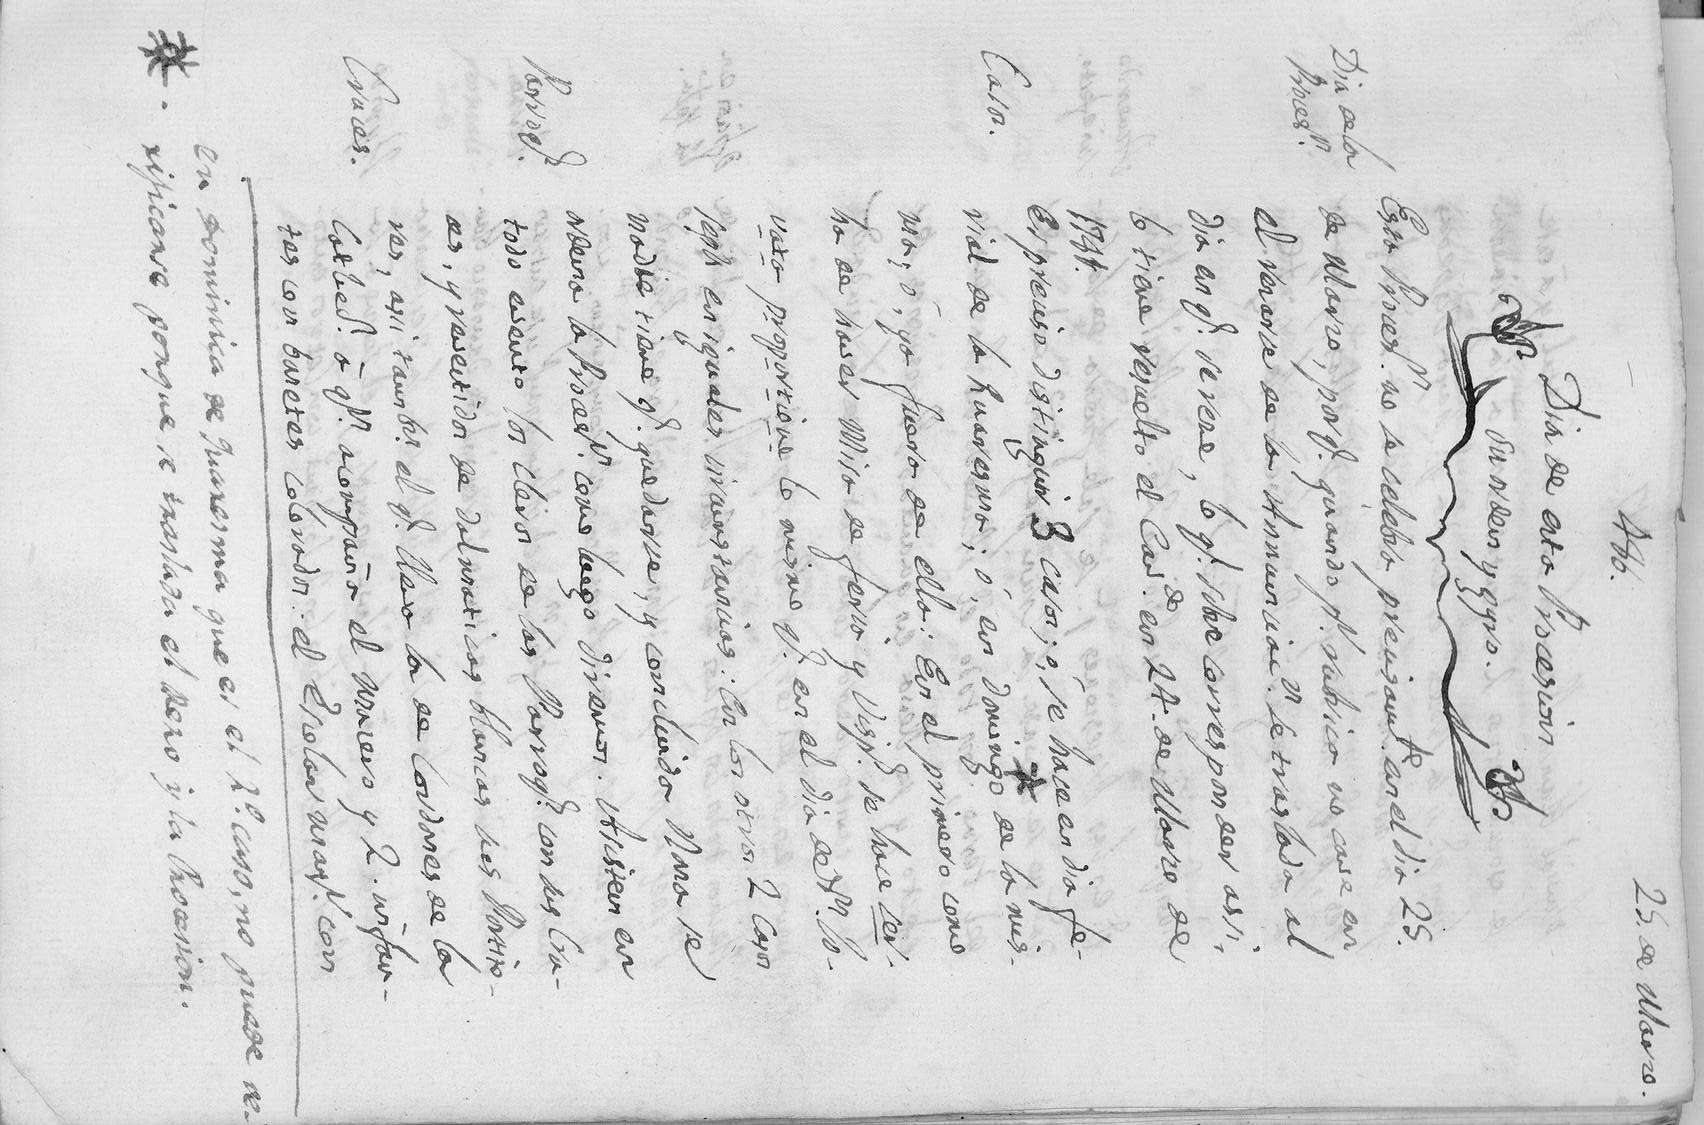 446.
25. de Marzo.
Dia de esta Procesion
su orden y gyro.
Dia de la
Procesn.
Esta Procesn. no se celebra precisamte. en el dia 25.
de Marzo, porq. quando pr. rubrica no cave en
el rezarse de la Annunciacn. se traslada al
dia en q. se reze, lo q. debe corresponder assi,
lo tiene resuelto el Cavdo. en 24. de Marzo de
Casos.
Es preciso distinguir 3 casos; ó, se hace en dia fe-
rial de la Quaresma; ó, en domingo * de la mis-
ma; ó, ya fuera de ella: En el primero como
ha de haver Misa de feria y Visp. se hace ser-
vata proportione lo mismo q. en el dia de Sn. Jo-
seph en iguales circunstancias: En los otros 2 casos
nadie tiene q. quedarse, y concluida Nona se
Parroq.
ordena la Procesn. como luego diremos. Assisten en
todo evento los cleros de las Parroqs. con sus Cru-
ces, y revestidos de dalmaticas blancas sus Portio-
Cruces.
nes, assi tambn. el q. lleva la de Cordones de la
Cathedl. á qn. acompaña el Macero y 2. infan-
tes con buretas colorados: el Escolar mayr. con
en dominica de Quaresma que es el 2º caso, no puede ve-
* . rificarse porque se traslada el Rezo y la Procesion.